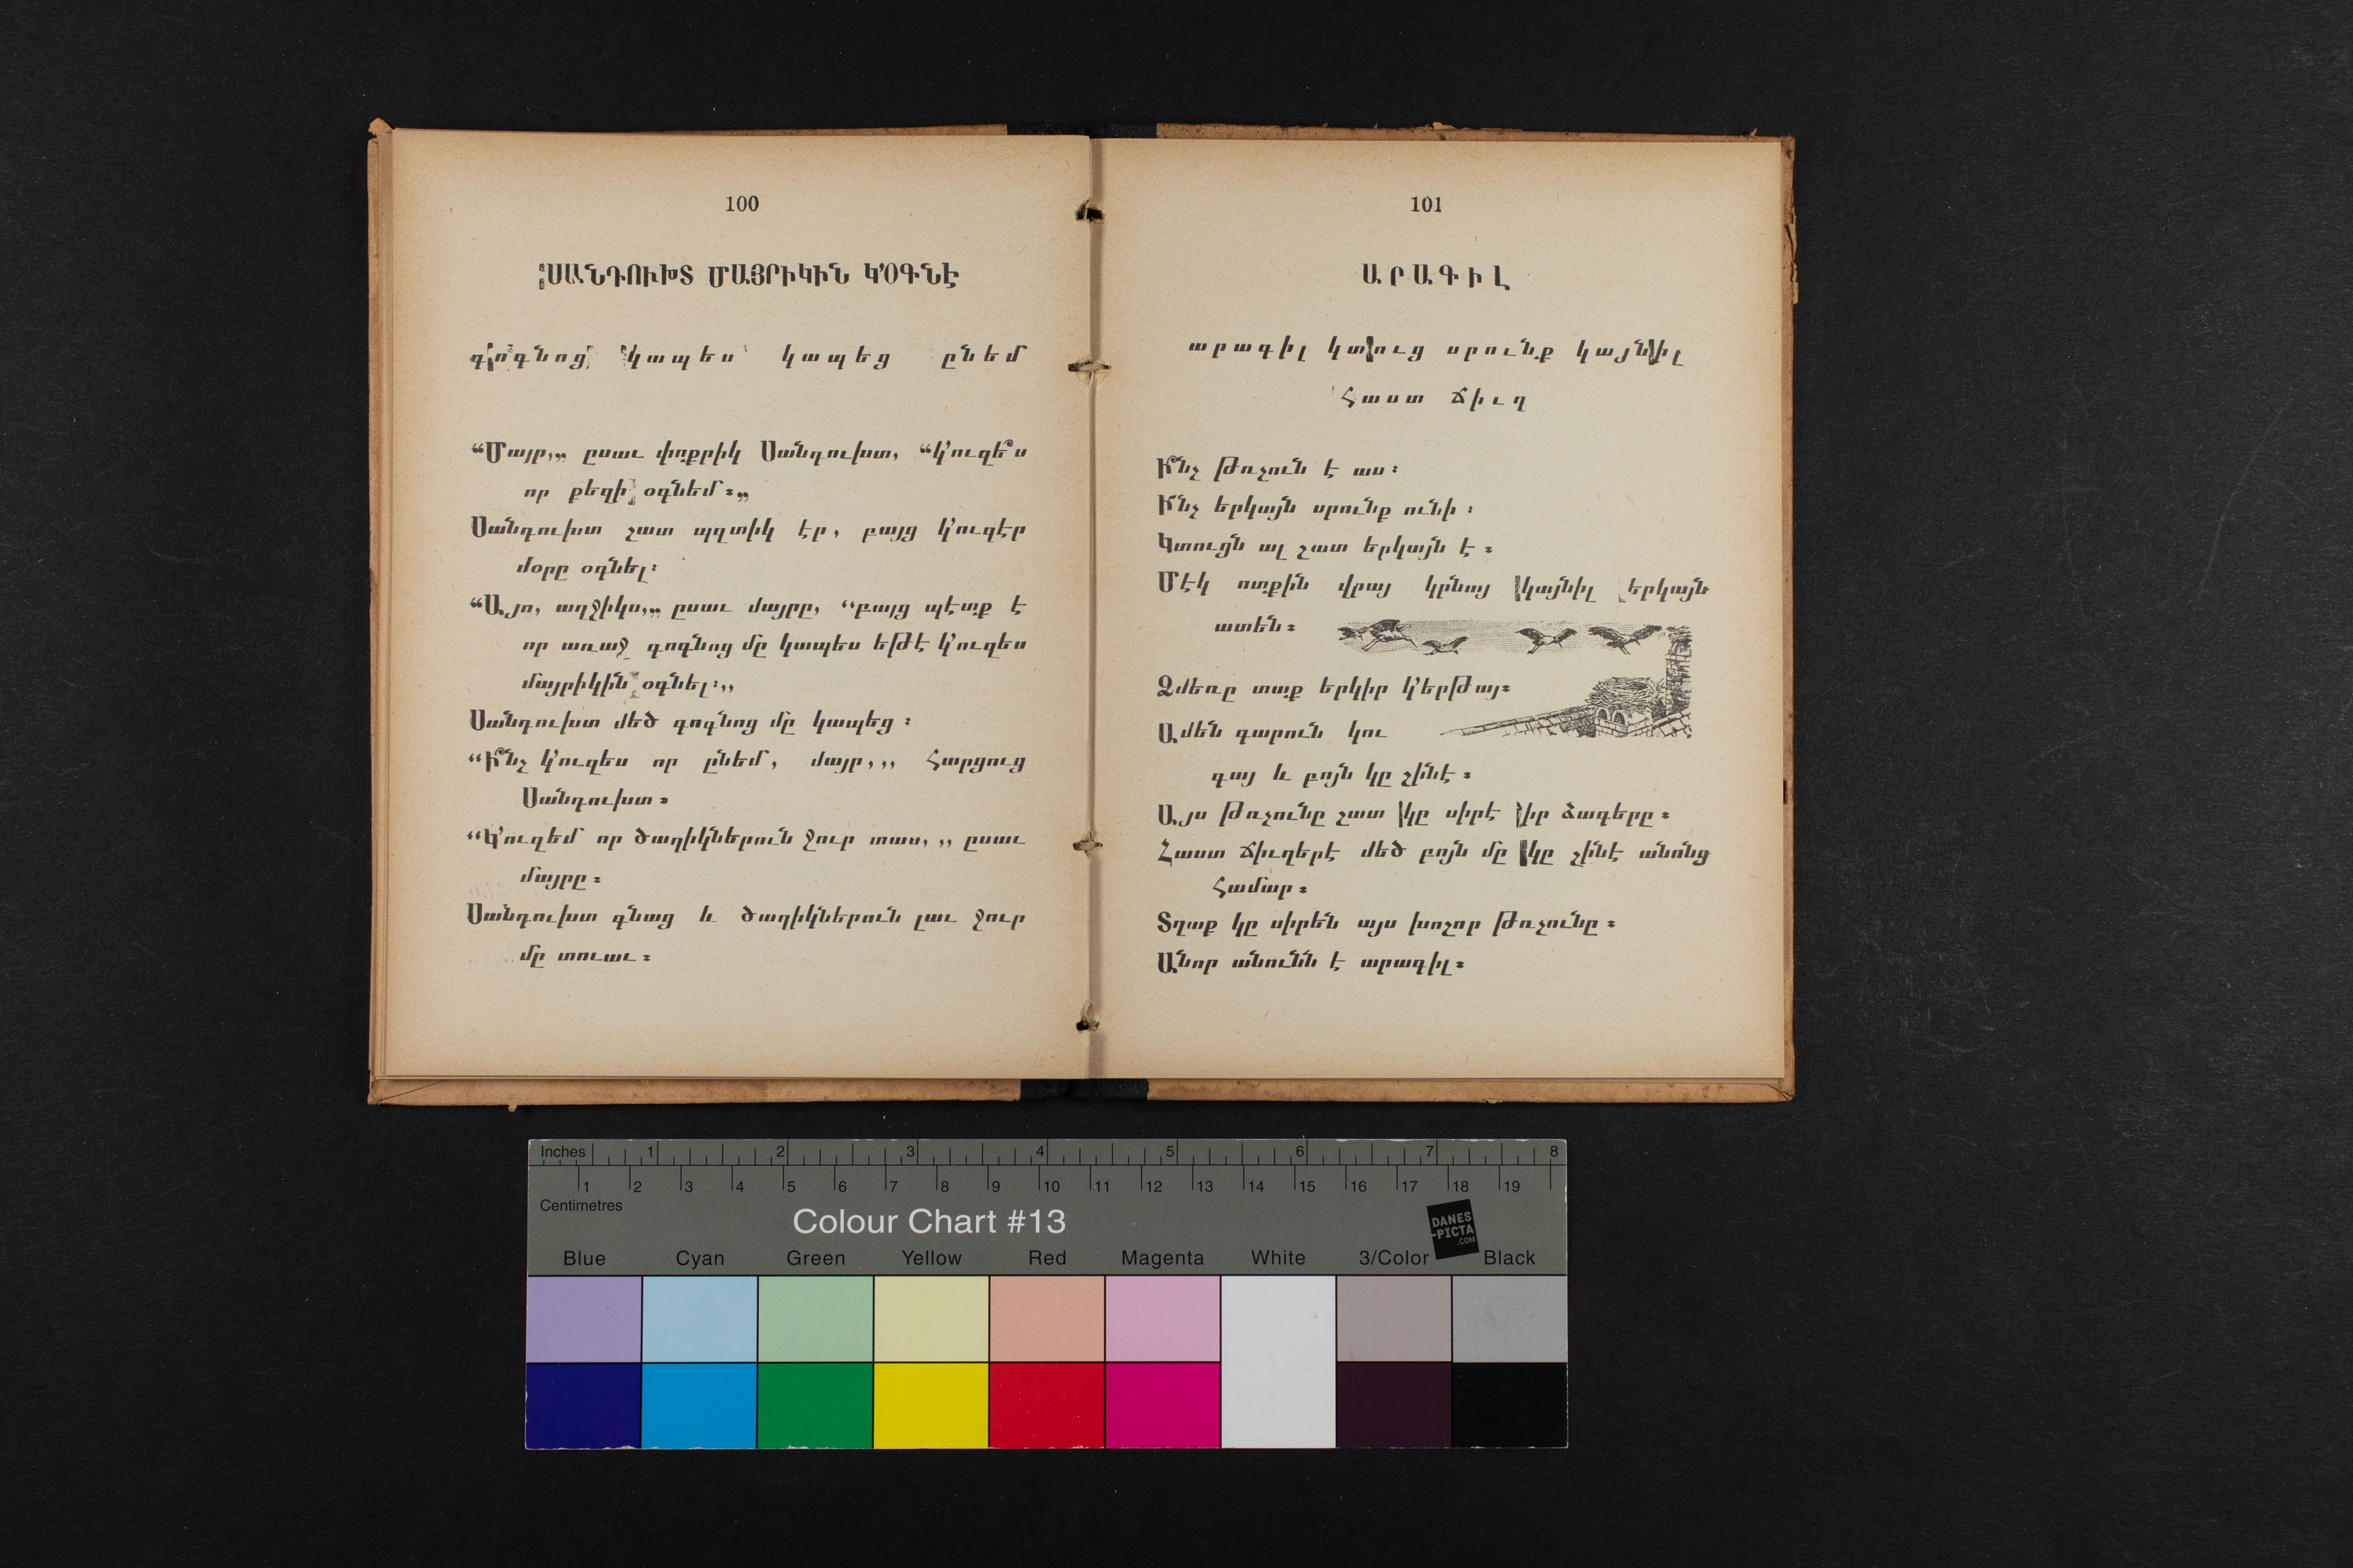 100
ՍԱՆԴՈՒԽՏ ՄԱՅՐԻԿԻՆ Կ՚ՕԳՆԷ
գոգնոց կապես կապեց ընեմ
“Մայր,„ ըսաւ փոքրիկ Սանդուխտ, “կ՚ուզե՞ս
որ քեզի օգնեմ։„
Սանդուխտ շատ պզտիկ էր, բայց կ՚ուզէր
մօրը օգնել։
“Այո, աղջիկս,„ ըսաւ մայրը, “բայց պէտք է
որ առաջ գոգնոց մը կապես եթէ կ՚ուզես
մայրիկին օգնել։,,
Սանդուխտ մեծ գոգնոց մը կապեց։
“Ի՞նչ կ՚ուզես որ ընեմ, մայր,,, հարցուց
Սանդուխտ։
“Կ՚ուզեմ որ ծաղիկներուն ջուր տաս, ,, ըսաւ
մայրը։
Սանդուխտ գնաց և ծաղիկներուն լաւ ջուր
մը տուաւ։
101
ԱՐԱԳԻԼ
արագիլ կտուց սրունք կայնիլ
հաստ ճիւղ
Ի՞նչ թռչուն է աս։
Ի՜նչ երկայն սրունք ունի։
Կտուցն ալ շատ երկայն է։
Մէկ ոտքին վրայ կրնայ կայնիլ երկայն
ատեն։
Ձմեռը տաք երկիր կ՚երթայ։
Ամեն գարուն կու
գայ և բոյն կը շինէ։
Այս թռչունը շատ կը սիրէ իր ձագերը։
Հաստ ճիւղերէ մեծ բոյն մը կը շինէ անոնց
համար։
Տղաք կը սիրեն այս խոշոր թռչունը։
Անոր անունն է արագիլ։
Inches 1 2 3 4 5 6 7 8
1 2 3 4 5 6 7 8 9 10 11 12 13 14 15 16 17 18 19
Centimetres
Colour Chart #13
DANES
-PICTA
.COM
Blue Cyan Green Yellow Red Magenta White 3/Color Black